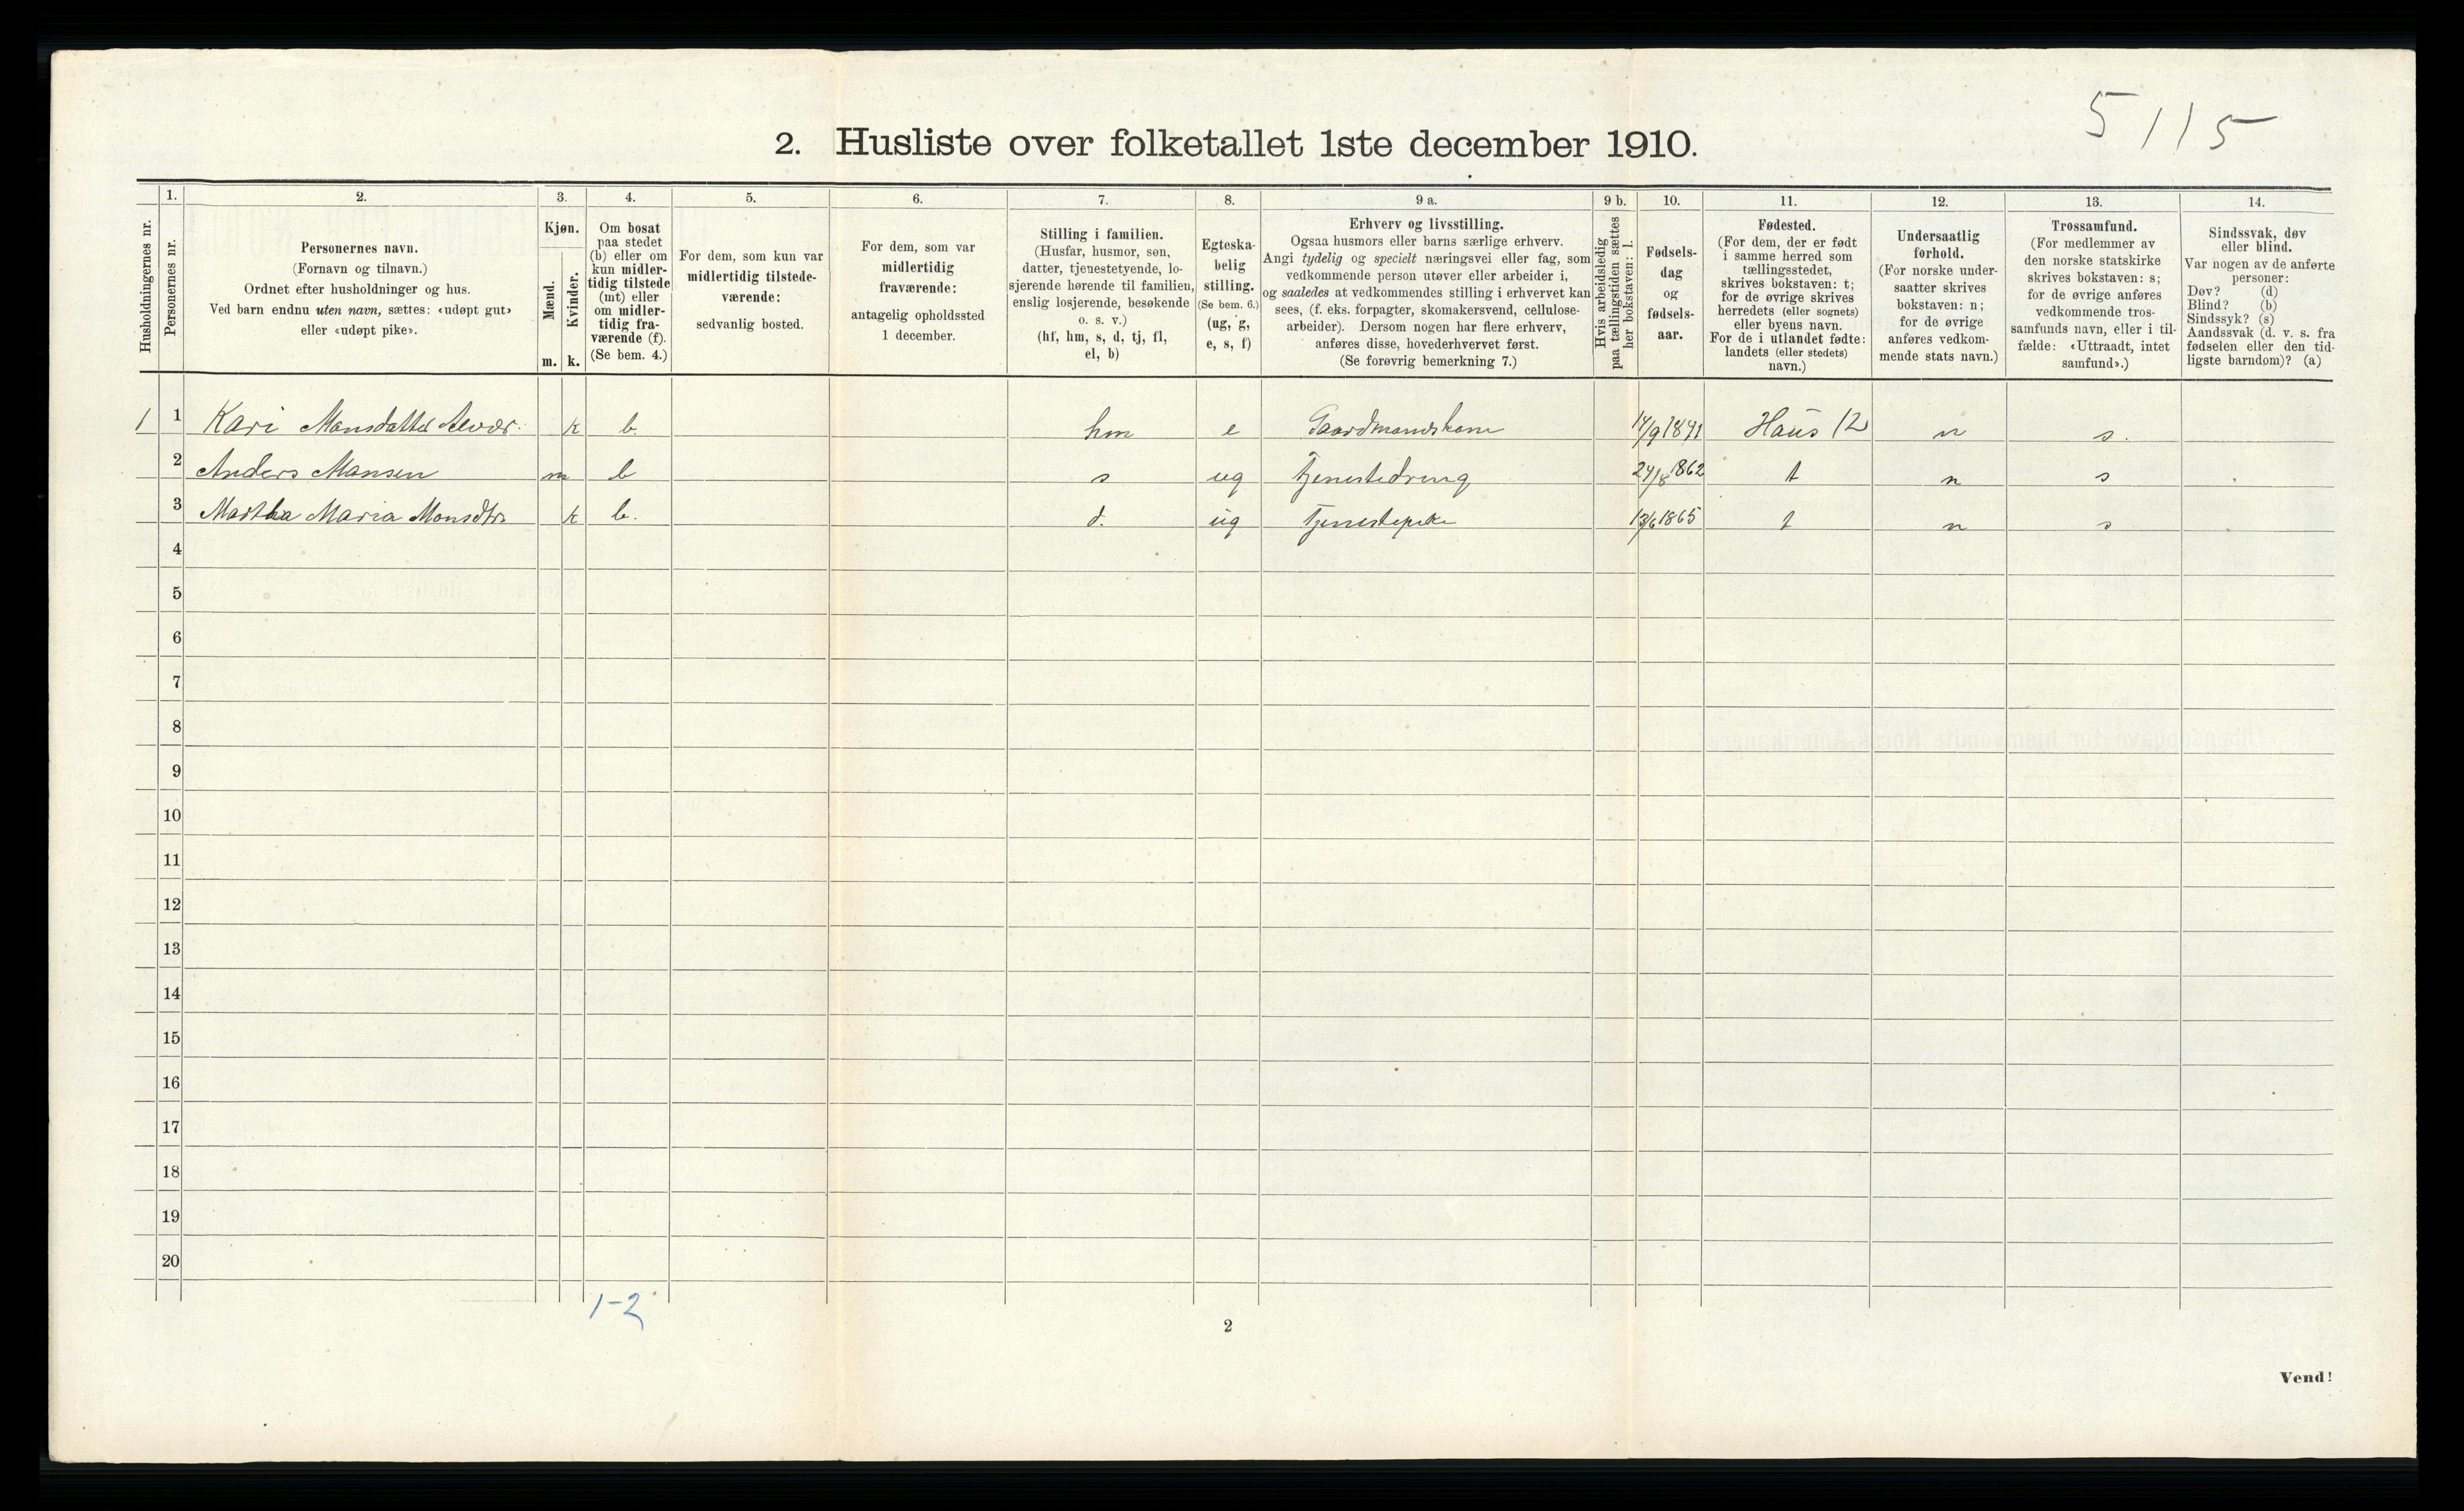 5 115
2. Husliste over folketallet 1ste december 1910.
Husholdningernes nr.
1. Personernes nr.
2. Personernes navn.
(Fornavn og tilnavn.)
Ordnet efter husholdninger og hus.
Ved barn endnu uten navn, sættes: «udøpt gut»
eller «udøpt pike».
3. Kjøn.
Mænd. m.
Kvinder. k.
4. Om bosat
paa stedet
(b) eller om
kun midler-
tidig tilstede
(mt) eller
om midler-
tidig fra-
værende (f).
(Se bem. 4.)
5. For dem, som kun var
midlertidig tilstede-
værende:
sedvanlig bosted.
6. For dem, som var
midlertidig
fraværende:
antagelig opholdssted
1 december.
7. Stilling i familien.
(Husfar, husmor, søn,
datter, tjenestetyende, lo-
sjerende hørende til familien,
enslig losjerende, besøkende
o. s. v.)
(hf, hm, s, d, tj, fl,
el, b)
8. Egteska-
belig
stilling.
(Se bem. 6.)
(ug, g,
e, s, f)
9 a. Erhverv og livsstilling.
Ogsaa husmors eller barns særlige erhverv.
Angi tydelig og specielt næringsvei eller fag, som
vedkommende person utøver eller arbeider i,
og saaledes at vedkommendes stilling i erhvervet kan
sees, (f. eks. forpagter, skomakersvend, cellulose-
arbeider). Dersom nogen har flere erhverv,
anføres disse, hovederhvervet først.
(Se forøvrig bemerkning 7.)
9 b. Hvis arbeidsledig
paa tællingstiden sættes
her bokstaven: l.
10. Fødsels-
dag
og
fødsels-
aar.
11. Fødested.
(For dem, der er født
i samme herred som
tællingsstedet,
skrives bokstaven: t;
for de øvrige skrives
herredets (eller sognets)
eller byens navn.
For de i utlandet fødte:
landets (eller stedets)
navn.)
12. Undersaatlig
forhold.
(For norske under-
saatter skrives
bokstaven: n;
for de øvrige
anføres vedkom-
mende stats navn.)
13. Trossamfund.
(For medlemmer av
den norske statskirke
skrives bokstaven: s;
for de øvrige anføres
vedkommende tros-
samfunds navn, eller i til-
fælde: «Uttraadt, intet
samfund».)
14. Sindssvak, døv
eller blind.
Var nogen av de anførte
personer:
Døv? (d)
Blind? (b)
Sindssyk? (s)
Aandssvak (d. v. s. fra
fødselen eller den tid-
ligste barndom)? (a)
1 1 Kari Monsdatter k b. hm e Gaardmandskone Haus 12 n s.
2 Anders Monsen m b s ug Tjenestedreng 24/8 1862 t n s
3 Martha Maria Monsdtr k b. d. ug Tjenestepike 13/6 1865 t n s
4
5
6
7
8
9
10
11
12
13
14
15
16
17
18
19
20
1-2
2
Vend!